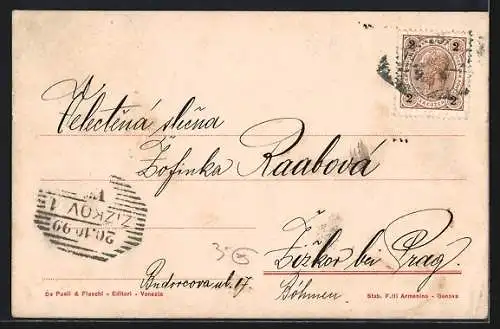 2 2
2 2
Velectěná slečna
Žofinka Raabová
Žižkov bei Prag.
Böhmen.
ŽIŽKOV 1
20.10.99
35
De Paoli & Fiaschi - Editori - Venezia
Stab. F.lli Armanino - Genova